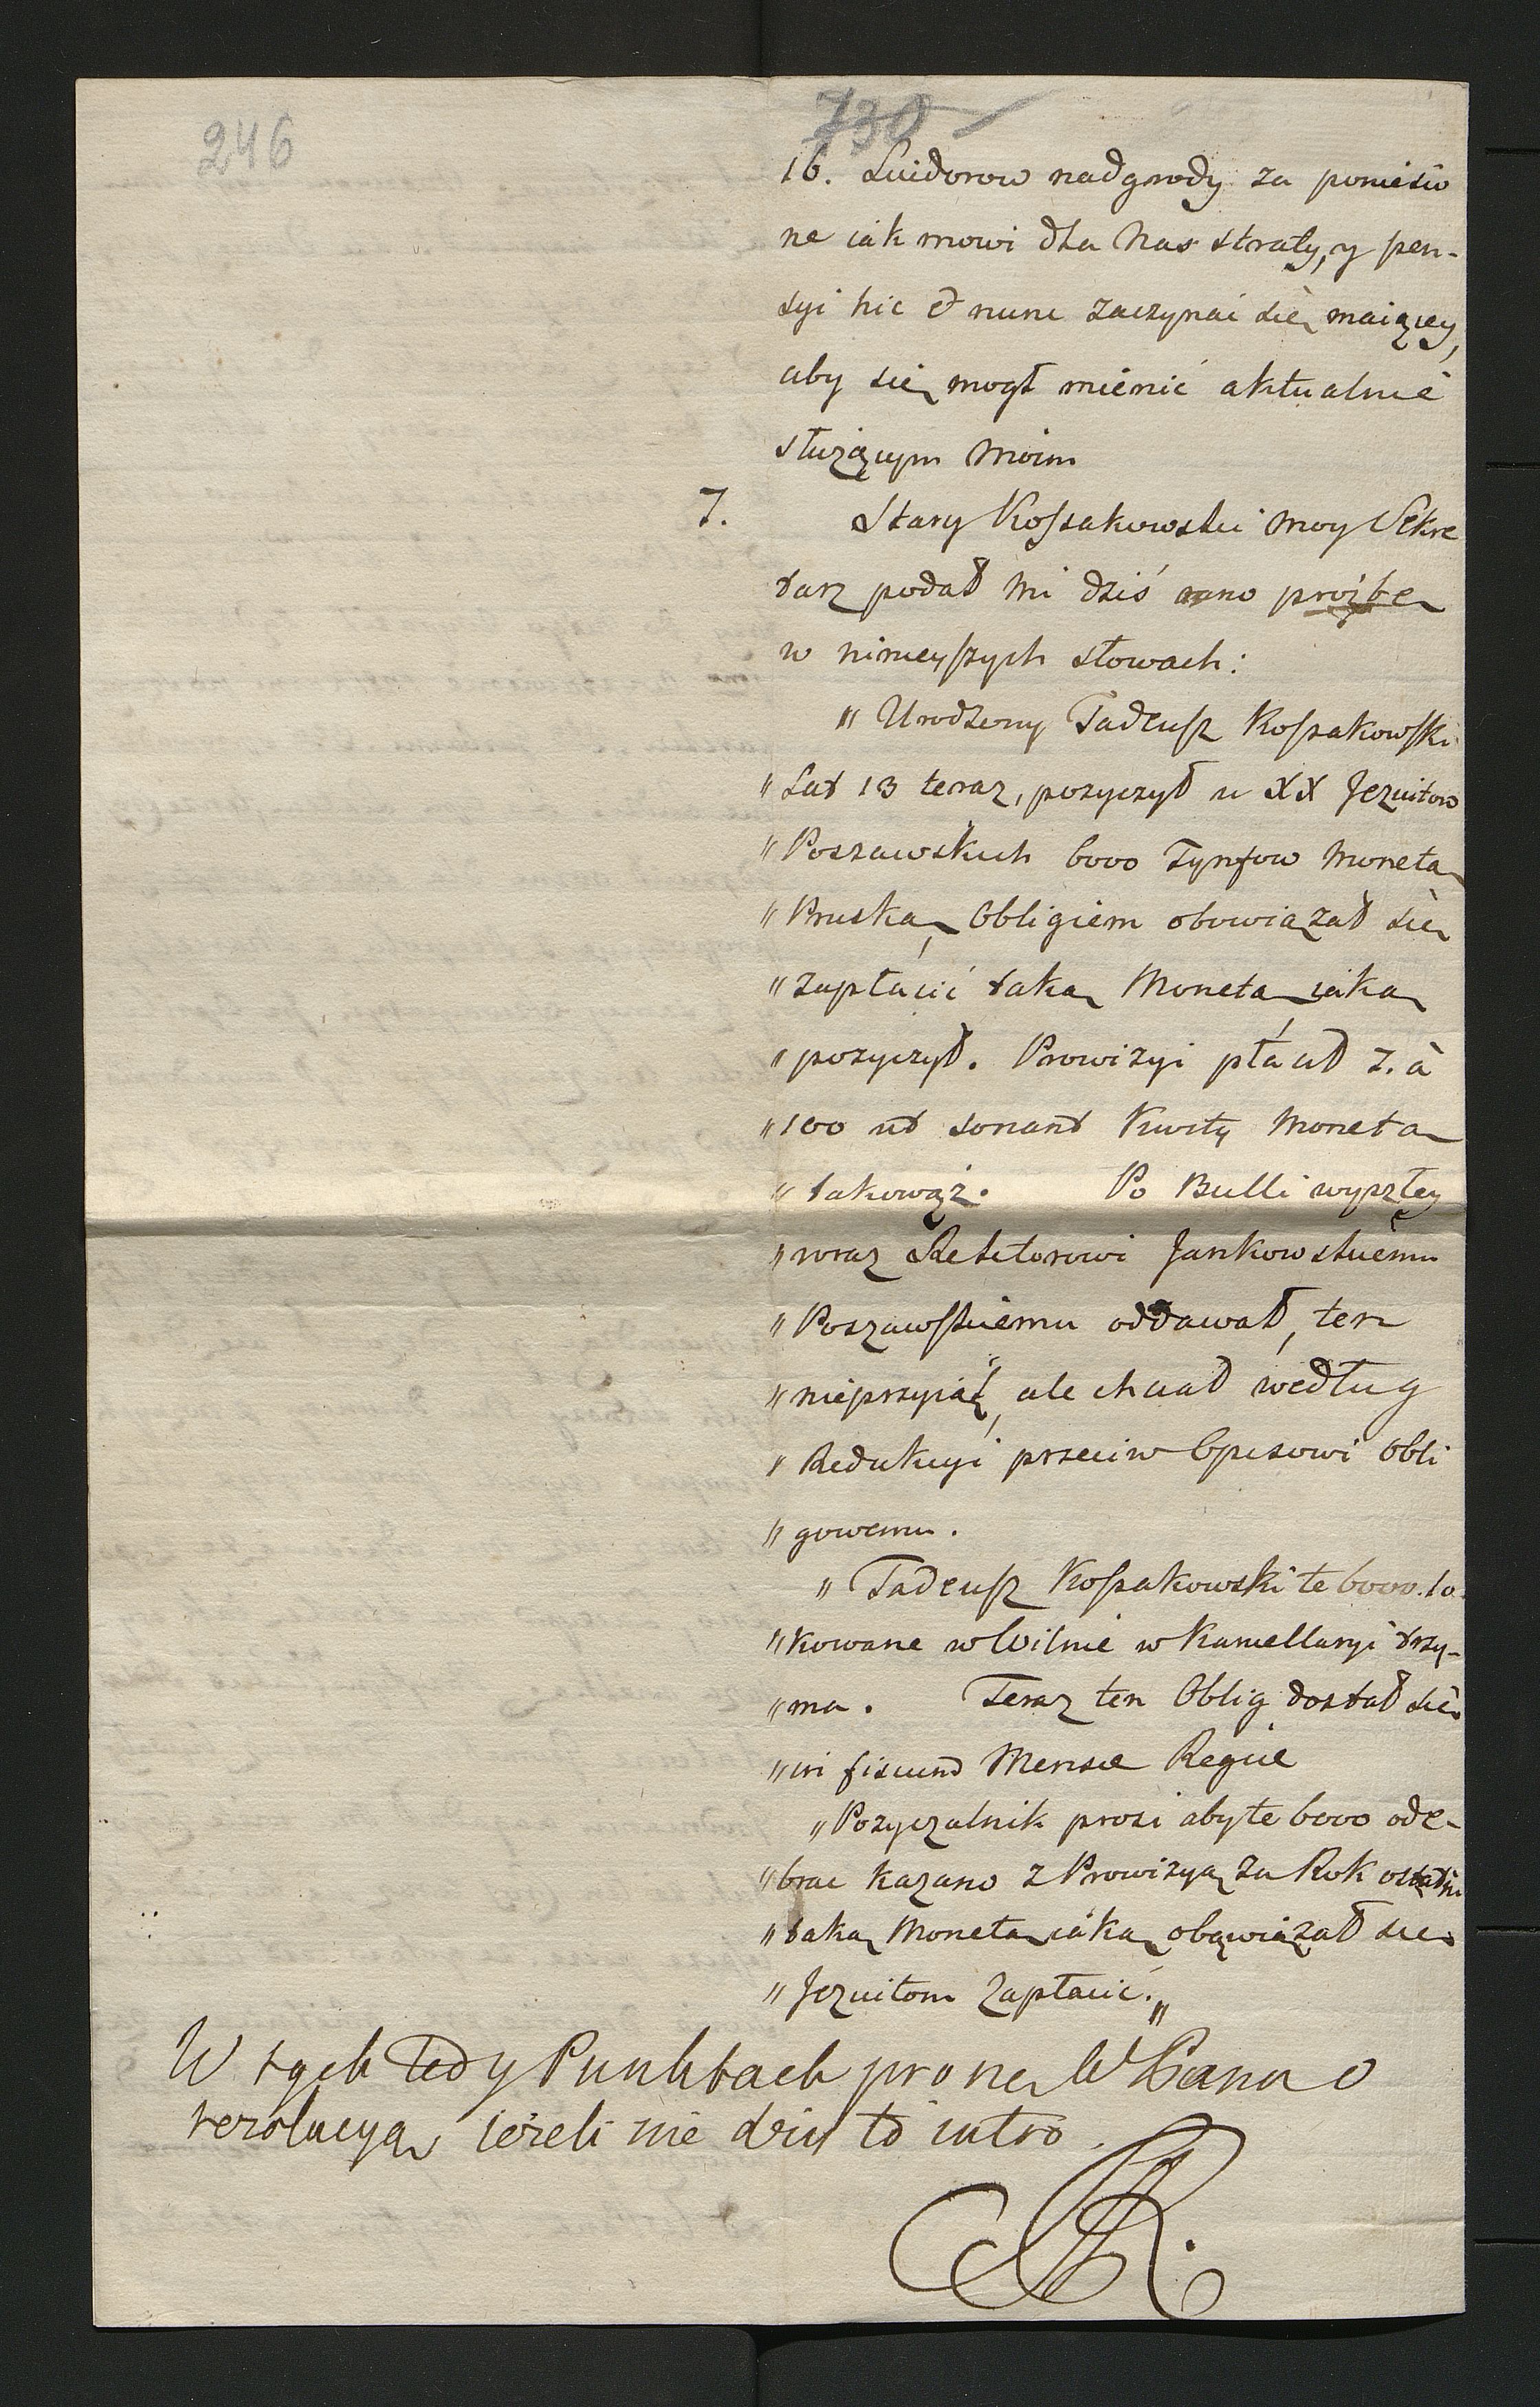 246
730
16. Luidorow nadgrody za poniesio
ne iak mowi dla Nas straty, y pen-
syi hic & nunc zaczynać się maiącey,
aby się mogł mienić aktualnie
służącym Moim
7. Stary Kossakowski Moy Sekre
tarz podał Mi dziś rano proźbę
w ninieyszych słowach:
" Urodzony Tadeusz Kossakowski
" Lat 13 teraz, pozyczył u XX Jezuitow
" Poszawskich 6000 Tynfow Monetą
" Pruską, Obligiem obowiązał się
" zapłacić taką Monetą iaką
" pozyczył. Prowizyi płacił 7. à
" 100 ut sonant Kwity Monetą
" takowąż. Po Bulli wyszłey
" wraz Rektorowi Jankowskiemu
" Poszawskiemu oddawał, ten
" nieprzyiął, ale chciał według
" Redukcyi przeciw Opisowi Obli
" gowemu.
" Tadeusz Kossakowski te 6000. lo
" kowane w Wilnie w Kancellaryi trzy-
" ma. Teraz ten Oblig dostał się
" in fiscum Mensæ Regiæ
" Pozyczalnik prosi aby te 6000 ode-
" brac kazano z Prowizyą za Rok ostatni
" taką Monetą iaką obowiązał się
" Jezuitom zapłacić."
W tych tedy Punktach proszę WPana o
rezolucyą, ieżeli nie dziś to iutro.
SAR.